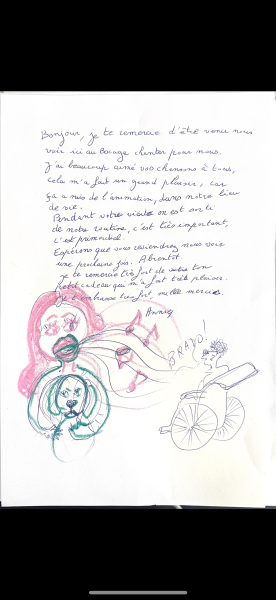 Bonjour, je te remercie d'être venu nous
voir ici au Bocage chanter pour nous.
J'ai beaucoup aimé vos chansons à tous,
cela m'a fait un grand plaisir, car
ça a mis de l'animation, dans notre lieu
de vie.
Pendant votre visite on est sorti
de notre routine, c'est très important,
c'est primordial.
Espérons que vous reviendrez nous voir
une prochaine fois. A bientôt.
je te remercie très fort de ton
petit cadeau qui m'a fait très plaisir.
je t'embrasse très fort, mille mercis.
BRAVO!